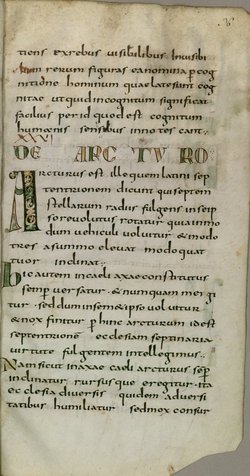 tiens ex rebus visibilibus invisibi
lium rerum figuras ea nomina p cog
nitione hominum quae latesunt cog
nitae ut quid incognitum significat
facilius per id quod est cognitum
humanis sensibus innotescant
XXVI
DE ARCTURO
Arcturus est ille quem latini sep
tentrionem dicunt qui septem
stellarum radiis fulgens in se ip
so revolutus rotatur qua in mo
dum vehiculi volvitur & modo
tres a summo elevat modo quat
tuor inclinat
hic autem in caeli axae constitutus
semp versatur & numquam mergi
tur sed dum in sem&ipso volvitur
& nox finitur p hinc arcturum id est
septentrione ecclesiam septinaria
virtute fulgentem intellegimus
Nam sicut in axae caeli arcturus sep
inclinatur rursusque erigitur ita
ecclesia diversis quidem adversi
tatibus humiliatur sed mox consur